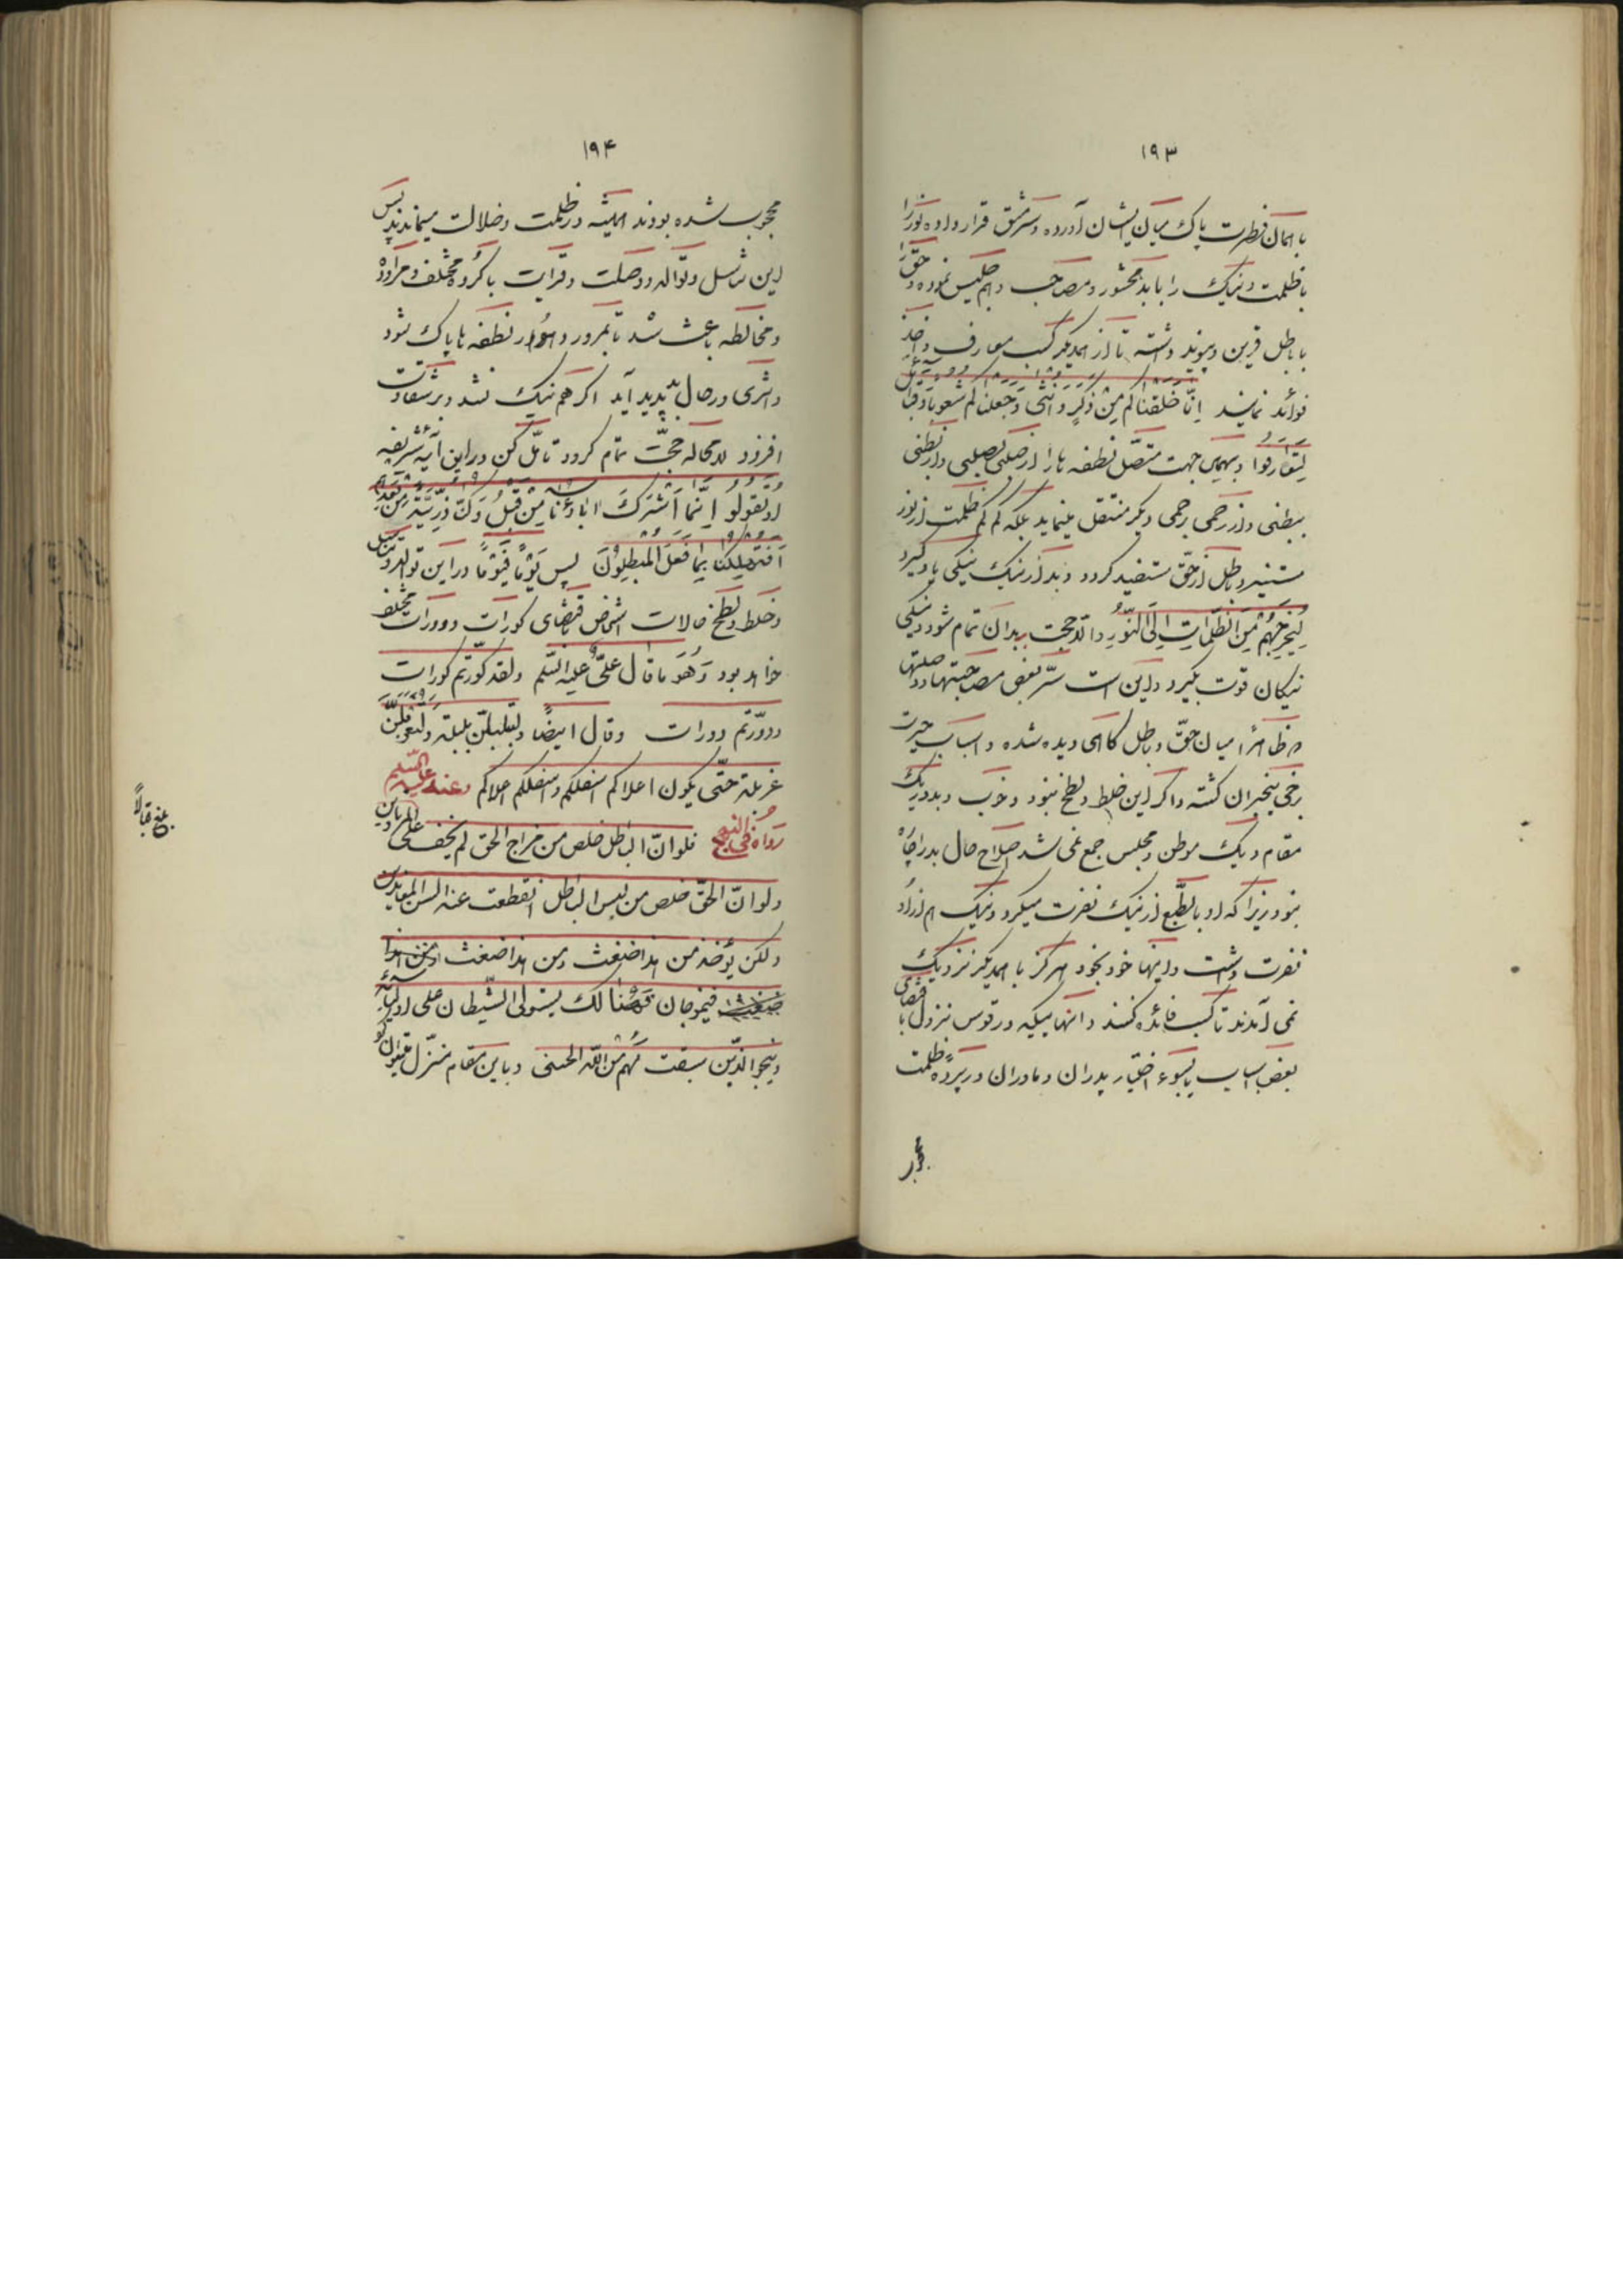 ۱۹۳
با همان فطرت پاک میان ایشان آورده و سرمشق قرار داده نور را
با ظلمت و نیک را با بد محشور و مصاحب و هم جلیس نموده و حق را
با باطل قرین و پیوند داشته تا از همدیگر کسب معارف و اخذ
فوائد نمایند اِنّا خَلَقناکُم مِن ذَکَرٍ وَ اُنثی وَ جَعَلناکُم شُعوباً وَ قَبائِلَ
لِتَعارَفوا و بهمین جهت متصّل نطفه ها را از صلبی بصلبی و از بطنی
ببطنی و از رحمی برحمی دیگر منتقل مینماید بلکه کم کم ظلمت از نور
مستنیر و باطل از حقّ مستفید گردد و بد از نیک نیکی یاد گیرد
لِیُخرِجَهُم مِنَ الظُّلُماتِ اِلَی النّور و الّا حجت ببدان تمام شود و نیکی
نیکان قوت بگیرد و این است سرّ بعض مصاحبتها و وصلتها
که ظاهراً میان حقّ و باطل گاهی دیده شده و اسباب حیرت
برخی بیخبران گشته و اگر این خلط و لطخ نبود و خوب و بد در یک
مقام و یک موطن و مجلس جمع نمی شد اصلاح حال بد را چاره
نبود زیرا که او بالطّبع از نیک نفرت میکرد و نیک هم از او
نفرت داشت و اینها خود بخود هرگز با همدیگر نزدیک
نمی آمدند تا کسب فائده کنند و انها میکه در قوس نزول با قتضای
بعض اسباب یا بسوء اختیار پدران و مادران در پرده ظلمت
محجوب
۱۹۴
محجوب شده بودند همیشه در ظلمت و ضلالت میماندند پس
این تناسل و توالد و وصلت و قرابت با گروه مختلف و مراوده
و مخالطه باعث شد تا بمرور دهور نطفه ها پاک شود
و اثری در حال بد پدید آید اگر هم نیک نشد و بر شقاوت
افزود لا محاله حجّت تمام گردد تامّل کن در این آیه شریفه
اَو تَقولوا اِنَّما اَشرَکَ اباؤُنا مِن قَبلُ وَ کُنّا ذُرِّیَّةً مِن بَعدِهِم
اَفَتُهلِکُنا بِما فَعَلَ المُبطِلونَ پس یَوماً فَیَوماً در این توالد و تناسل
و خلط و لطخ حالات اشخاص باقتضای کورات و دورات مختلف
خواهد بود وَ هُوَ ما قال علیّ علیه السّلم و لقد کوّرتم کورات
و دوّرتم دورات و قال ایضاً و لتبلبلنّ بلبلة و لتغربلنّ
غربلة حتّی یکون اعلاکم اسفلکم و اسفلکم اعلاکم وعنه علیه السّلم
رَواهُ فی النهج فلو انّ الباطل خلص من مزاج الحق لم یخف علی المرتادین
و لو انّ الحقّ خلص من لبس الباطل انقطعت عنه السن المعاندین
و لکن یؤخذ من هذا ضغث و من هذا ضغث
فیمزجان فهنا لک یستولی الشّیطان علی اولیائه
و ینجو الذّین سبقت لهم من اللّه الحسنی و باین مقام
بلغ قبالاً